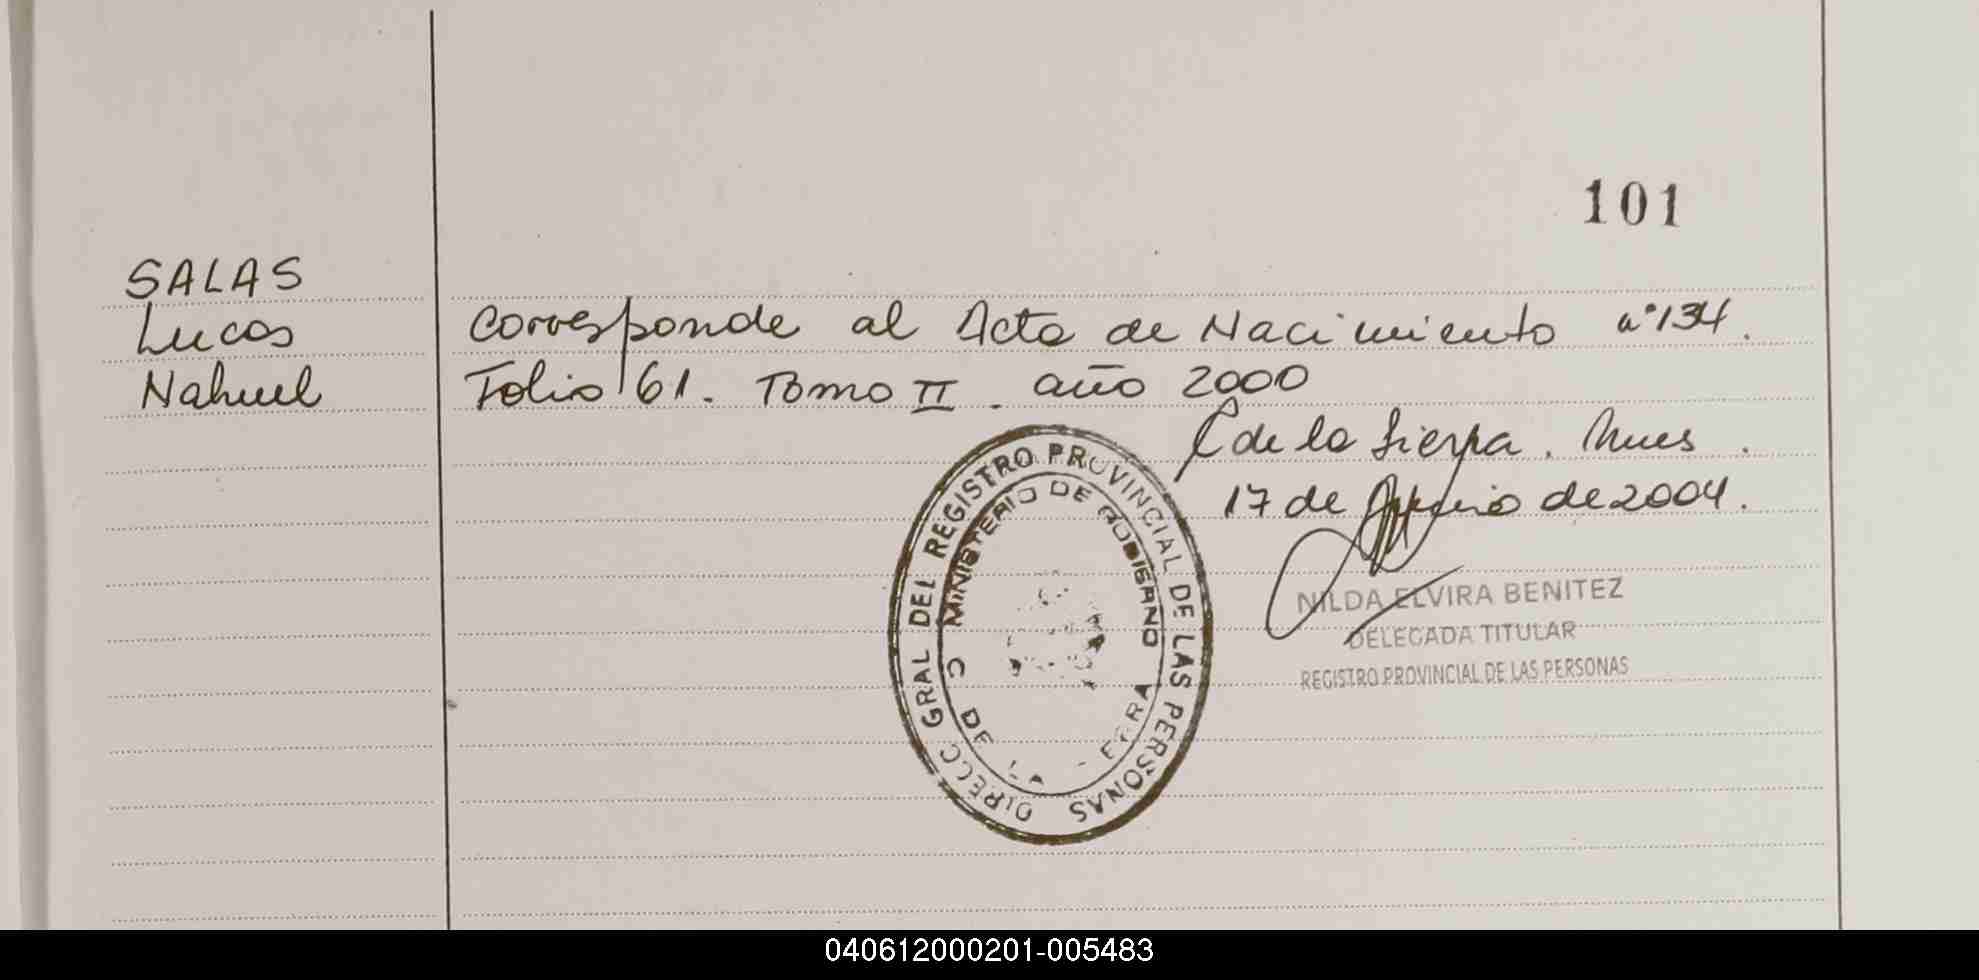 101
SALAS
Lucas
Nahuel
Corresponde al Acta de Nacimiento n°134.
Folio 61. Tomo II. año 2000
C de la Sierra. Mnes.
17 de de 2004.
DIRECC GRAL DEL REGISTRO PROVINCIAL DE LAS PERSONAS
MINISTERIO DE GOBIERNO
C DE
NILDA ELVIRA BENITEZ
DELEGADA TITULAR
REGISTRO PROVINCIAL DE LAS PERSONAS
040612000201-005483